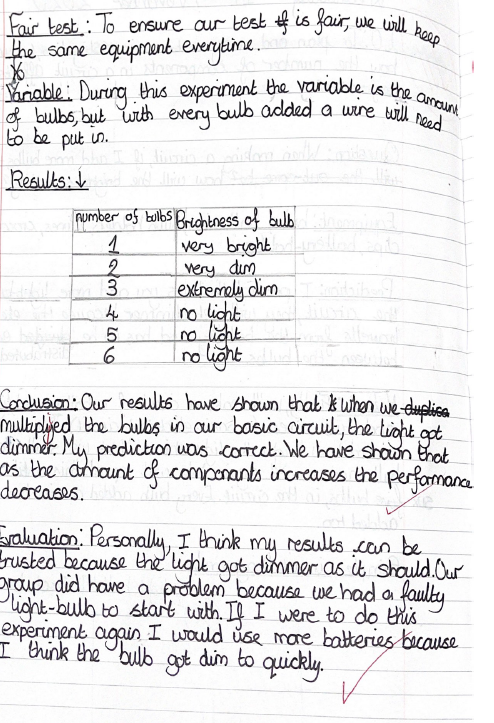 Fair test: To ensure our test is fair, we will keep
the same equipment everytime.
Variable: During this experiment the variable is the amount
of bulbs, but with every bulb added a wire will need
to be put in.
Results: ↓
number of bulbs Brightness of bulb
1 very bright
2 very dim
3 extremely dim
4 no light
5 no light
6 no light
Conclusion: Our results have shown that when we
multiplyed the bulbs in our basic circuit, the light got
dimmer. My prediction was correct. We have shown that
as the amount of componants increases the performance
decreases.
Evaluation: Personally, I think my results can be
trusted because the light got dimmer as it should. Our
group did have a problem because we had a faulty
light-bulb to start with. If I were to do this
experiment again I would use more batteries because
I think the bulb got dim to quickly.